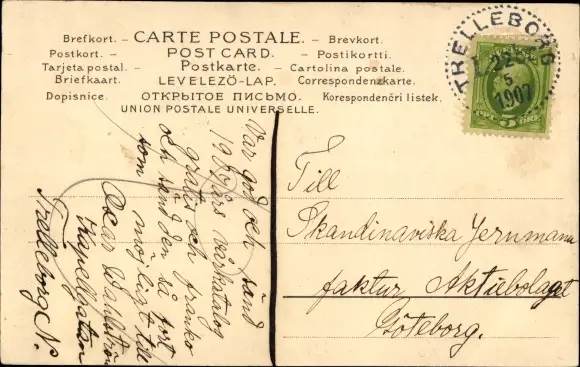 Brefkort. – CARTE POSTALE. – Brevkort.
Postkort. – POST CARD. – Postikortti.
Tarjeta postal. – Postkarte. – Cartolina postale.
Briefkaart. LEVELEZÖ-LAP. Correspondenzkarte.
Dopisnice. ОТКРЫТОЕ ПИСЬМО. Korespondenční listek.
UNION POSTALE UNIVERSELLE.
TRELLEBORG
22
5
1907
5 ÖRE
Var god och sänd
1907 års
gratis och franko
och sänd den så fort
som möjligt till
Oscar
Kapellgatan
Trelleborg
Till
Skandinaviska Jernmanu
faktur Aktiebolaget
Göteborg.